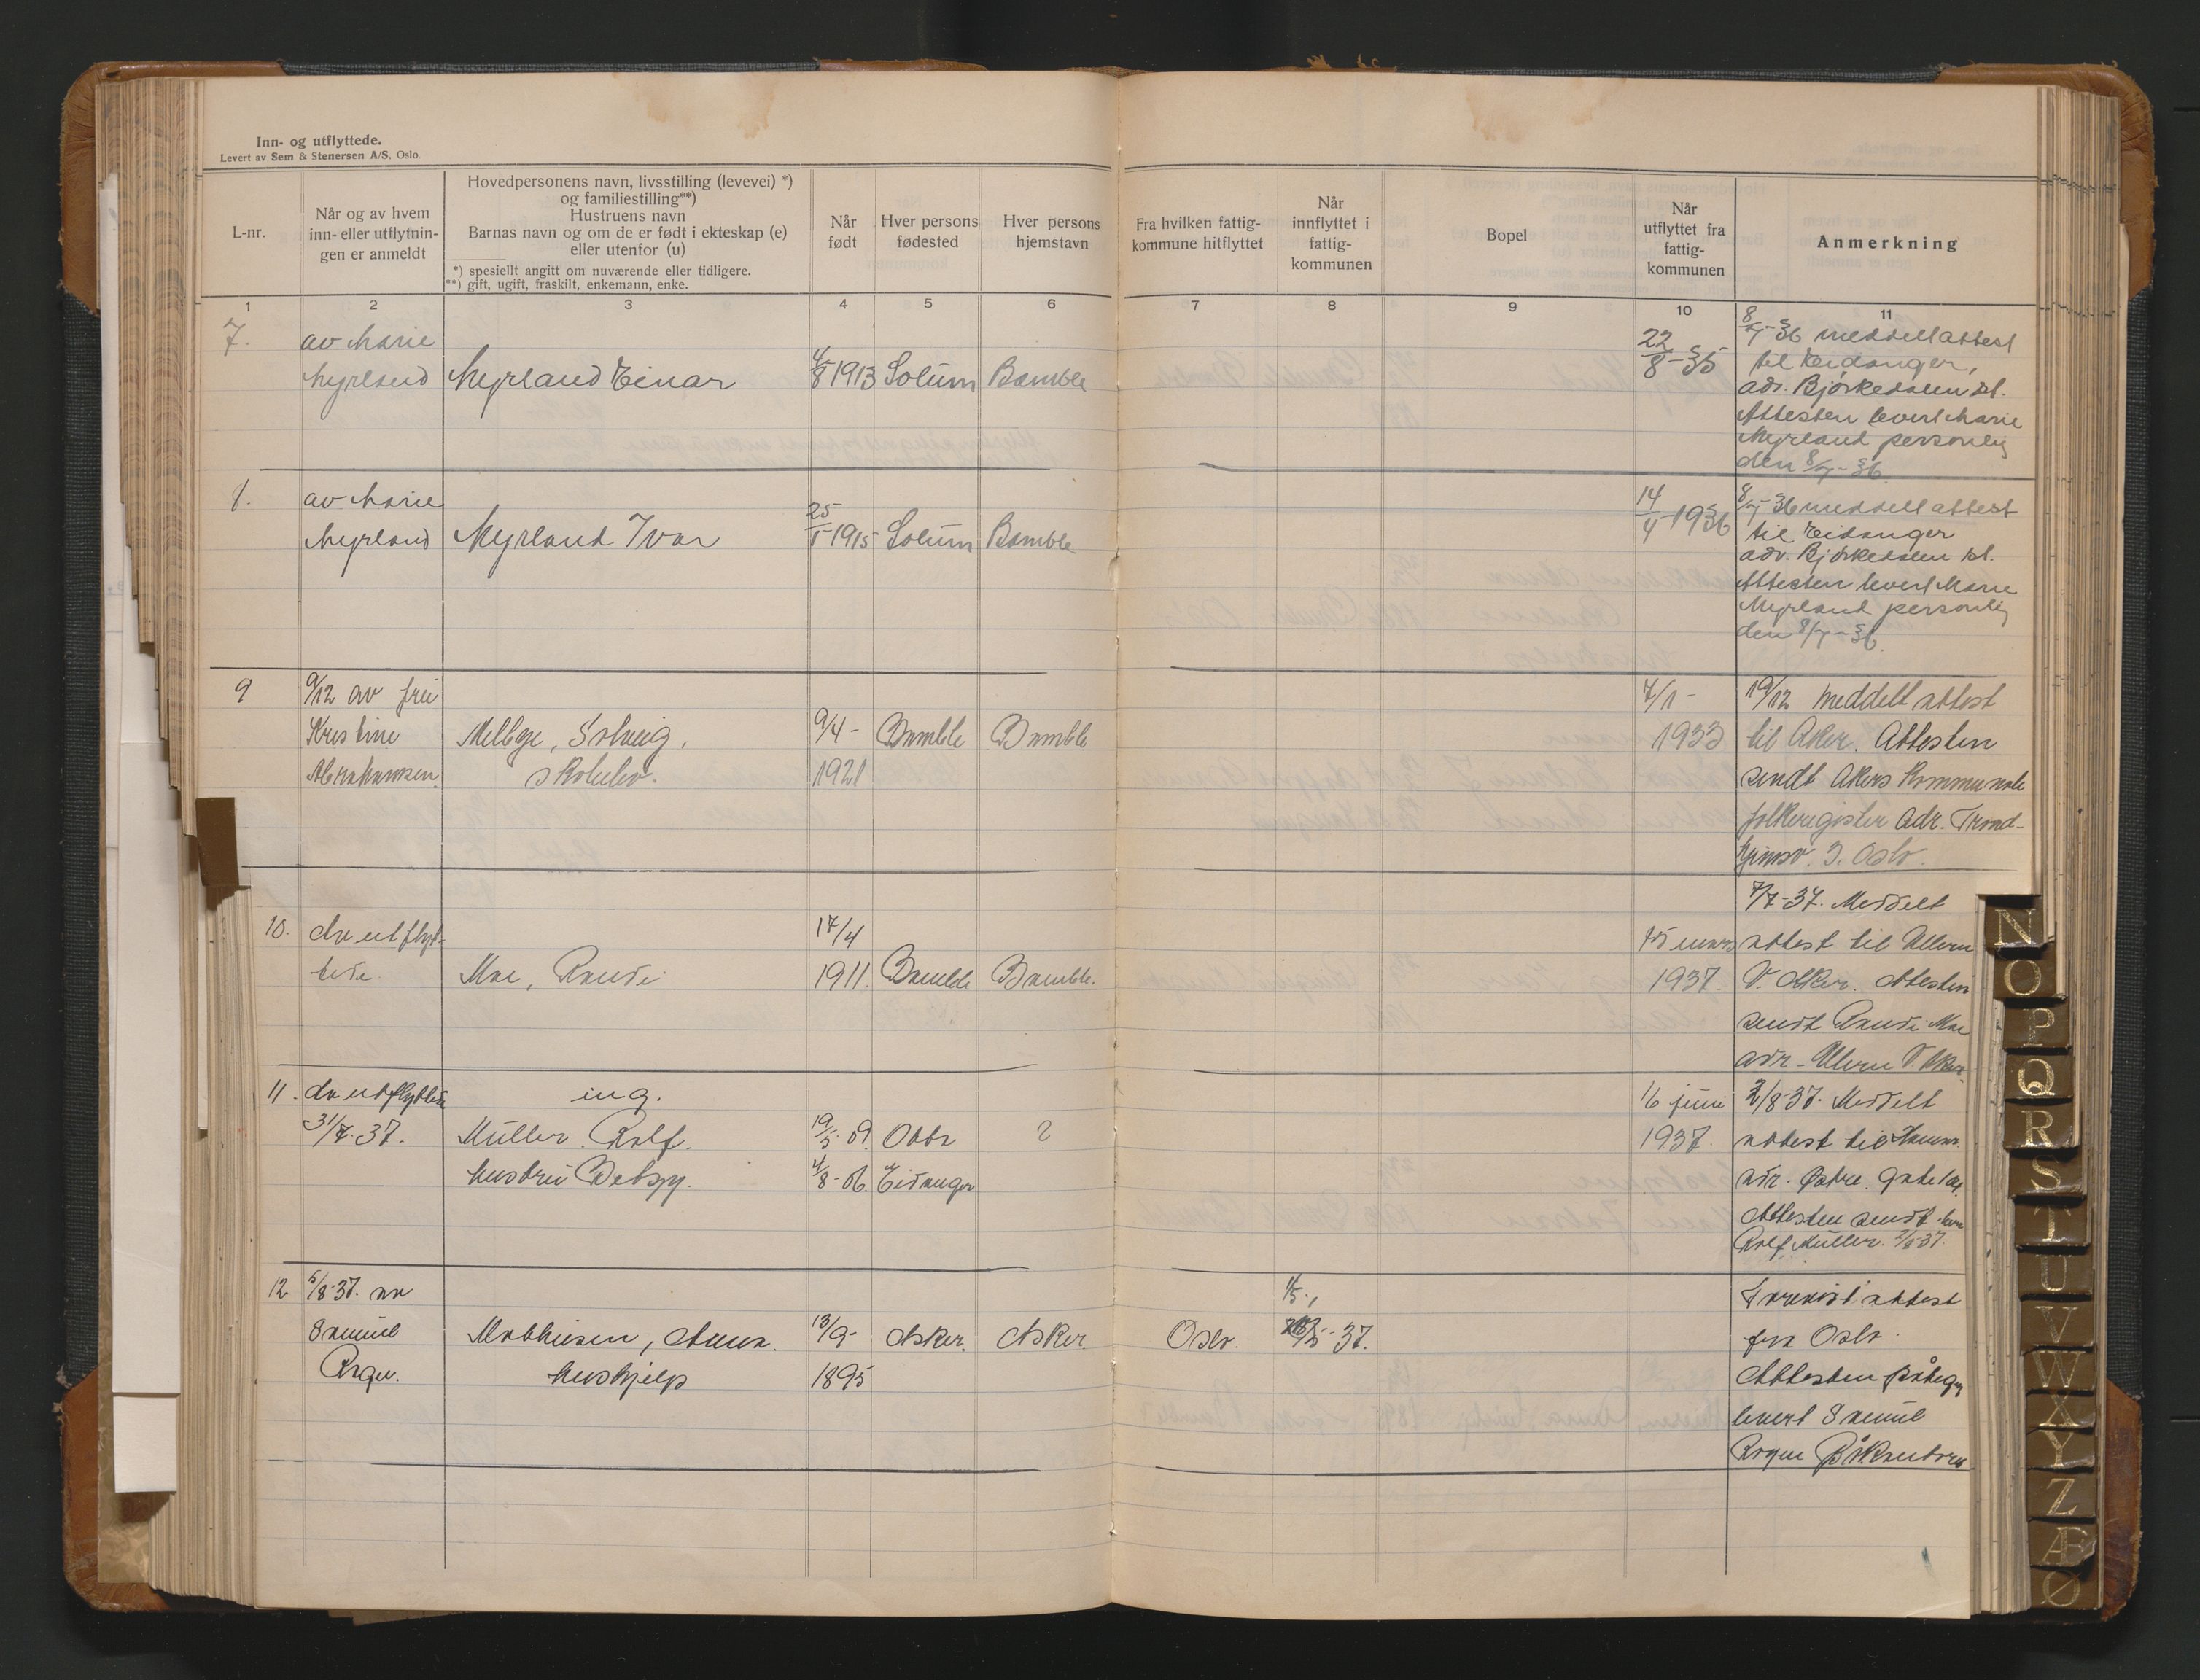 Inn- og utflyttede.
Levert av Sem & Stenersen A/S. Oslo.
L-nr.
Når og av hvem
inn- eller utflytnin-
gen er anmeldt
Hovedpersonens navn, livsstilling (levevei) *)
og familiestilling**)
Hustruens navn
Barnas navn og om de er født i ekteskap (e)
eller utenfor (u)
*) spesiellt angitt om nuværende eller tidligere.
**) gift, ugift, fraskilt, enkemann, enke.
Når
født
Hver persons
fødested
Hver persons
hjemstavn
Fra hvilken fattig-
kommune hitflyttet
Når
innflyttet i
fattig-
kommunen
Bopel
Når
utflyttet fra
fattig-
kommunen
Anmerkning
1 2 3 4 5 6 7 8 9 10 11
7. av Marie
Myrland Myrland Einar 4/8 1913 Solum Bamble 22/8-35
8/7-36 meddelt attest
til Eidanger,
adr. Bjørkedalen st.
Attesten levert Marie
Myrland personlig
den 8/7-36
8. av Marie
Myrland Myrland Ivar 25/1-1915 Solum Bamble 14/4-1936
8/7-36 meddelt attest
til Eidanger
adr. Bjørkedalen st.
Attesten levert Marie
Myrland personlig
den 8/7-36.
9 9/12 av fru 7/1- 19/12 meddelt attest
Kristine Melbye, Solveig, 9/4- Bamble Bamble 1933 til Aker. Attesten
Abrahamsen. skoleelev. 1921 sendt Akers kommunale
folkeregister Adr. Trond-
hjemsv. 3. Oslo.
7/7-37. Meddelt
10. av utflyt- 17/4 15 mars attest til Ullern
tede. Moe, Randi 1911. Bamble Bamble. 1937. V. Aker. Attesten
sendt Randi Moe
adr- Ullern V. Aker.
11. av utflyttede ing. 16 juni 2/8-37. Meddelt
31/7-37. Müller Rolf. 19/5-09. Oddr 2 1937. attest til Hamar.
hustru Betsy. 4/8-06. Eidanger adr. Østre gate
Attesten sendt herr
Rolf Müller. 2/8-37.
12 5/8-37. av 1/5-, Forevist attest
Samuel Mathiesen, Anna. 13/9- Asker. Asker Oslo. 37. fra Oslo.
hushjelp 1895 Attesten påtegn
levert Samuel